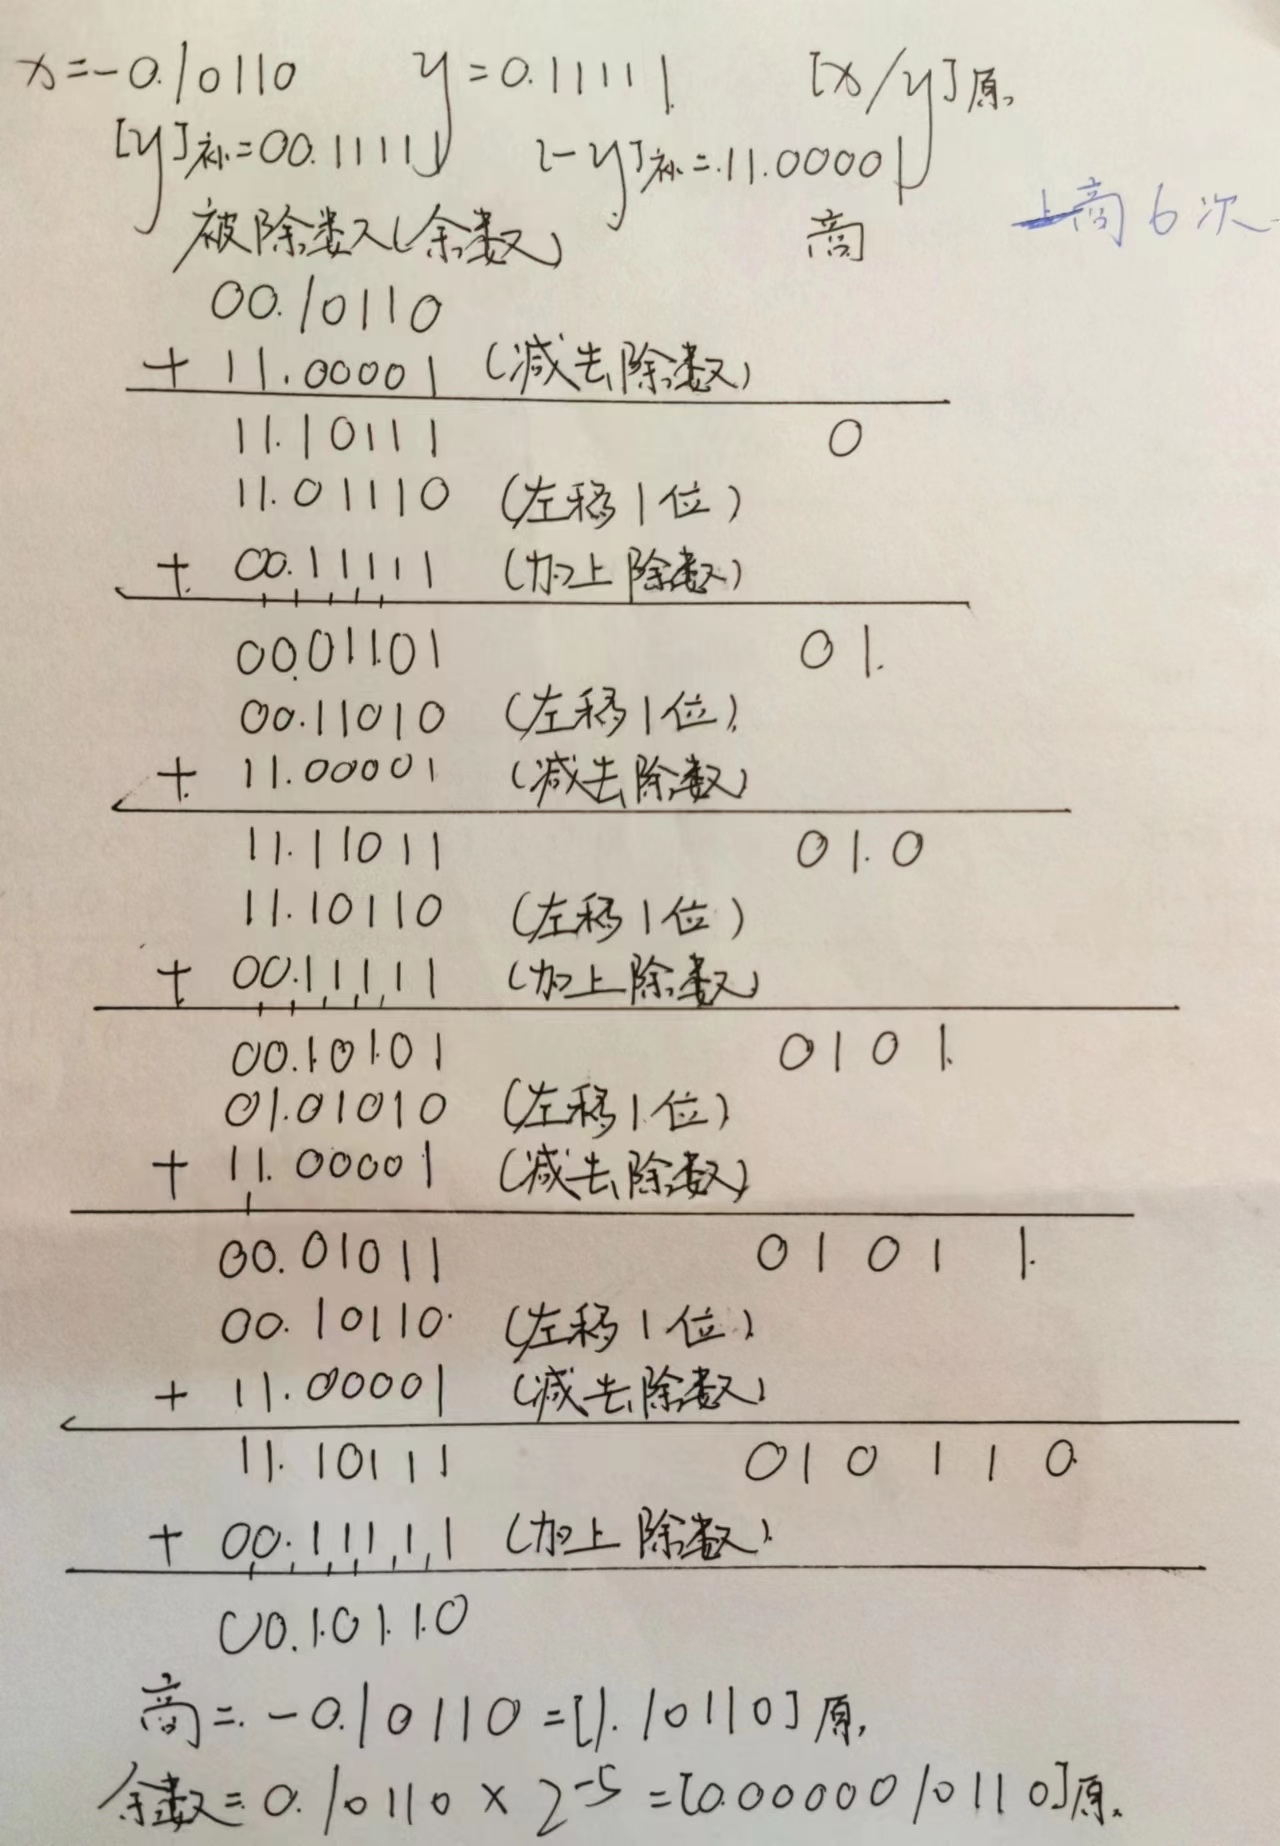 x=-0.10110 y=0.11111 [x/y]原
[y]补=00.11111 [-y]补=11.00001
被除数(余数) 商 上商6次
00.10110
+ 11.00001 (减去除数)
11.10111 0
11.01110 (左移1位)
+ 00.11111 (加上除数)
00.01101 01
00.11010 (左移1位)
+ 11.00001 (减去除数)
11.11011 01.0
11.10110 (左移1位)
+ 00.11111 (加上除数)
00.10101 0101
01.01010 (左移1位)
+ 11.00001 (减去除数)
00.01011 01011
00.10110 (左移1位)
+ 11.00001 (减去除数)
11.10111 010110
+ 00.11111 (加上除数)
00.10110
商=-0.10110=[1.10110]原
余数=0.10110×2-5=[0.0000010110]原